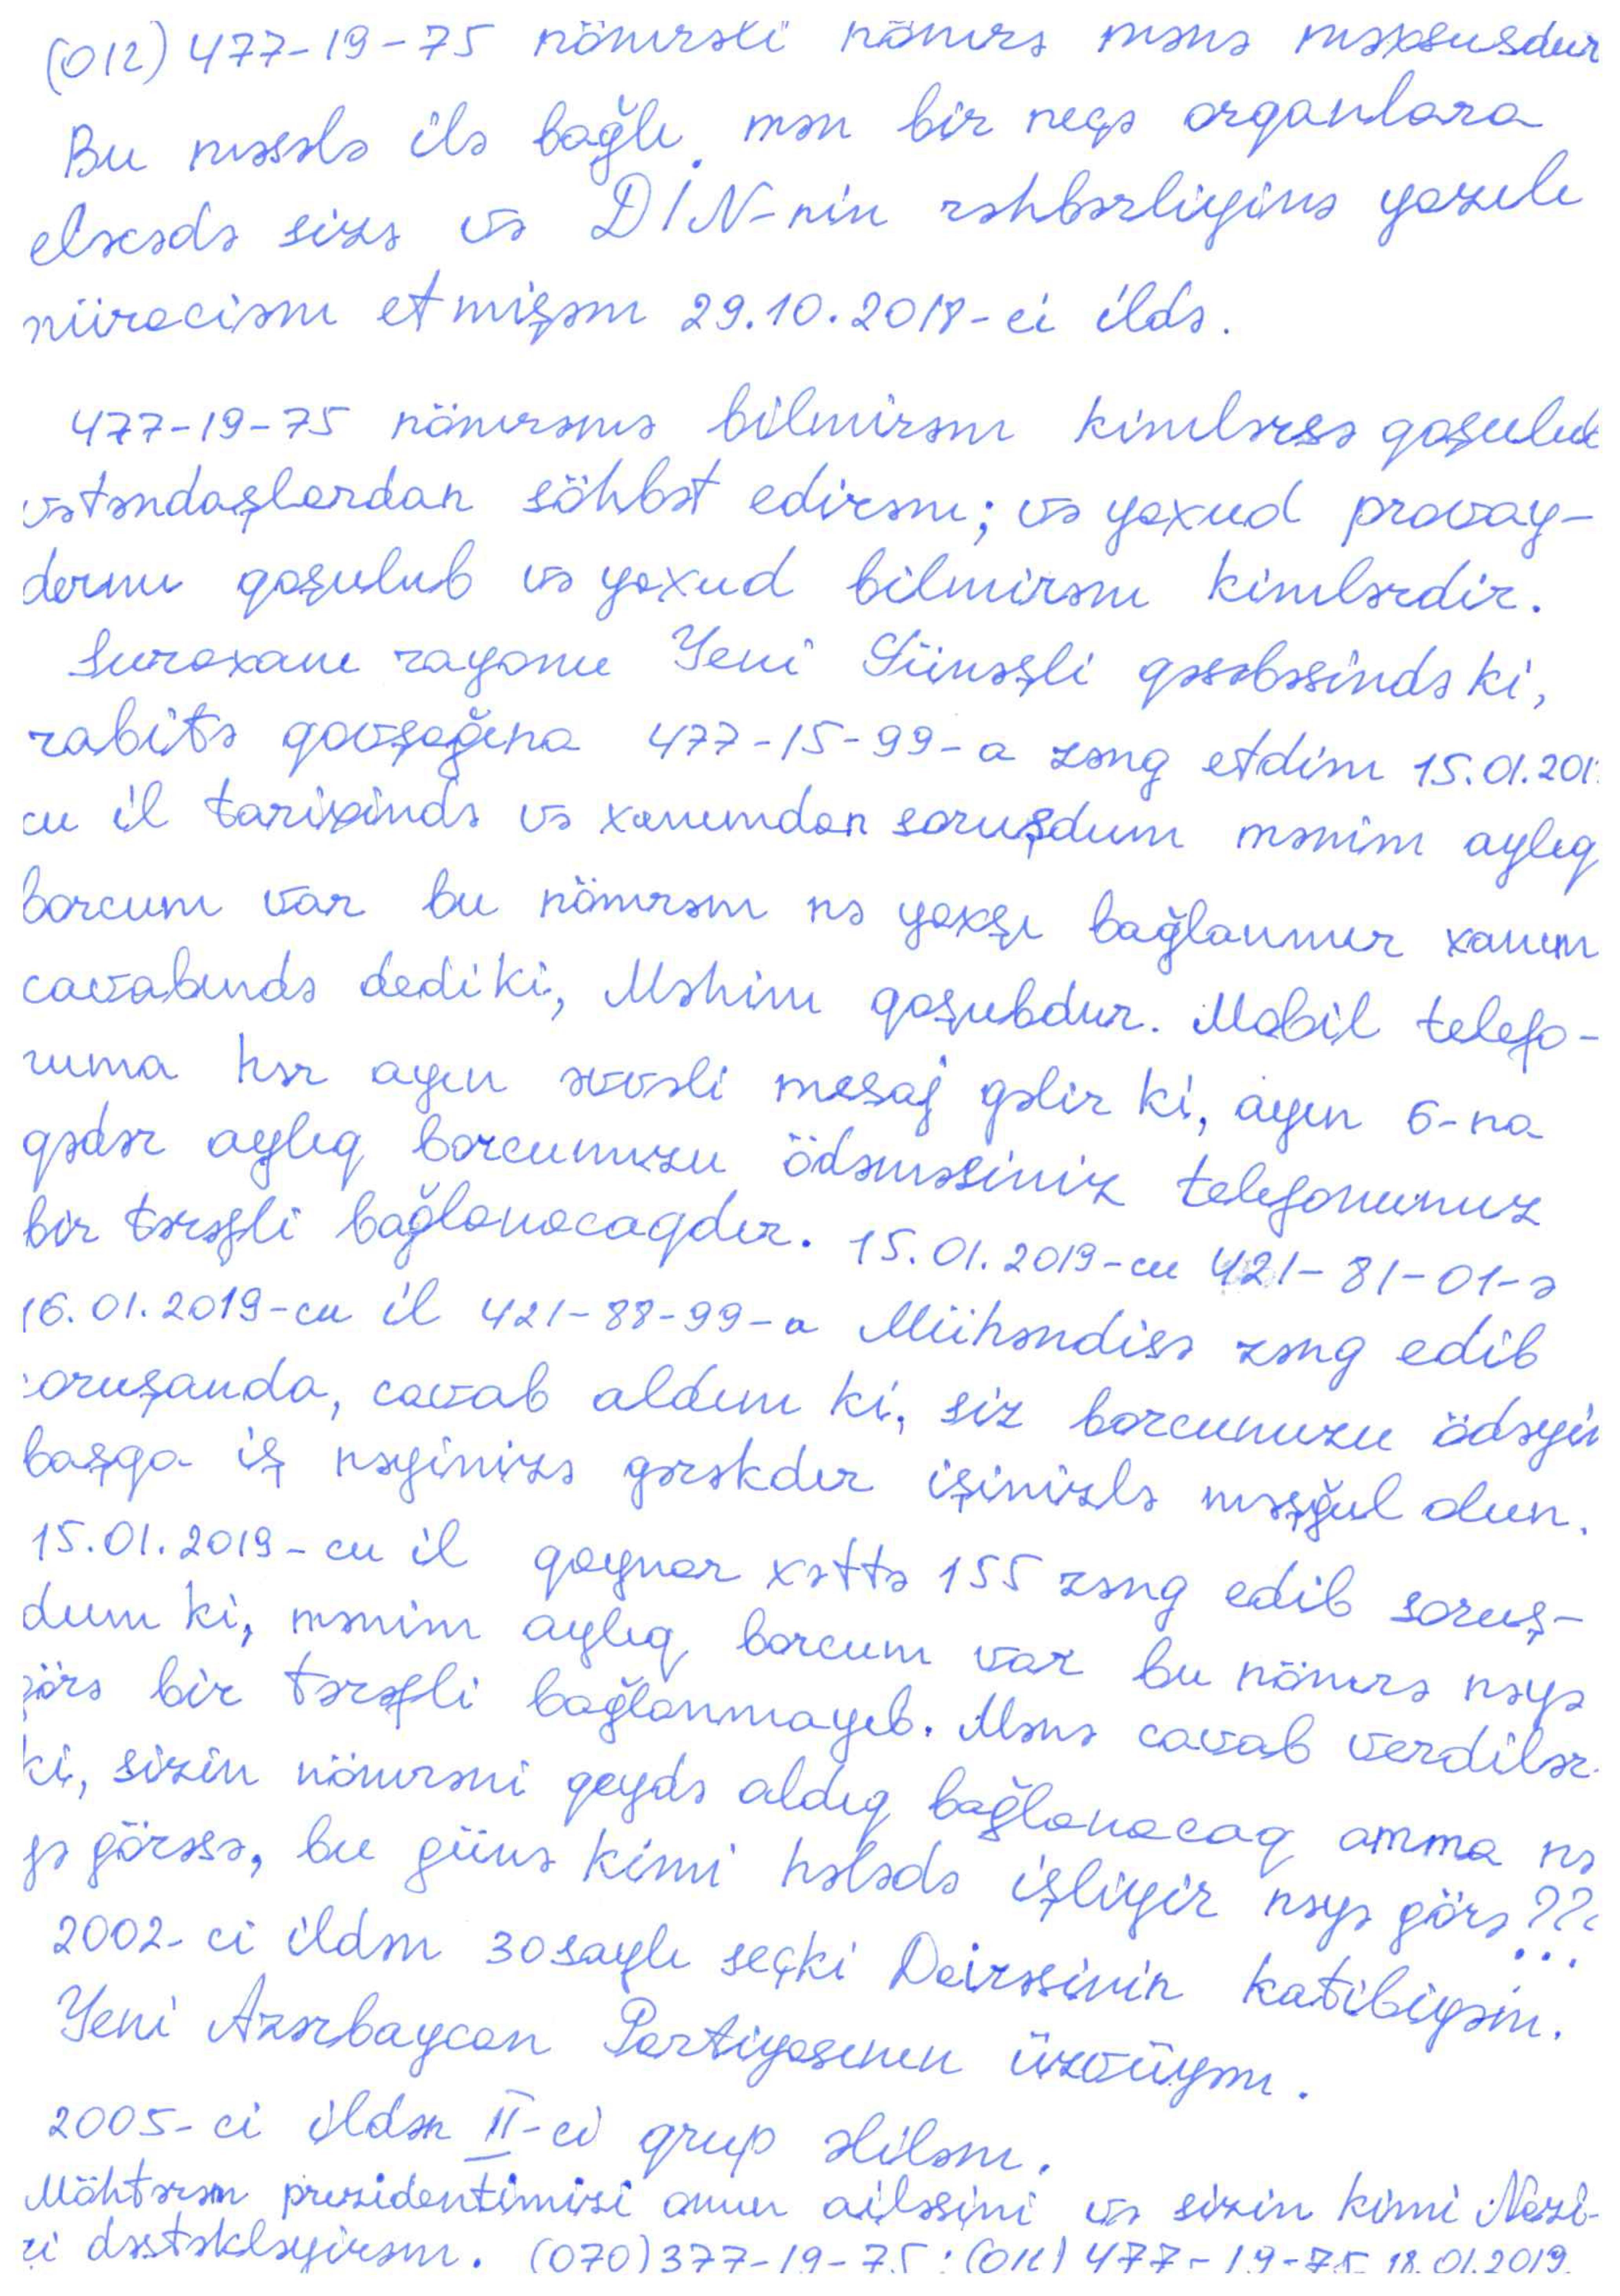 (012) 477-19-75 nömrəli nömrə mənə məxsusdur
Bu məsələ ilə bağlı mən bir neçə orqanlara
eləcədə sizə və DİN-nin rəhbərliyinə yazılı
müraciəm etmişəm 29.10.2018-ci ildə.
477-19-75 nömrəmə bilmirəm kimlərsə qoşulub
vətəndaşlardan söhbət edirəm; və yaxud provay-
dermı qoşulub və yaxud bilmirəm kimlərdir.
Suraxanı rayonu Yeni Günəşli qəsəbəsində ki,
rabitə qovşağına 477-15-99-a zəng etdim 15.01.201
cu il tarixində və xanımdan soruşdum mənim aylıq
borcum var bu nömrəm nə yaxşı bağlanmır xanım
cavabında dedi ki, Məhim qoşubdur. Mobil telefo-
numa hər ayın əvvəli mesaj gəlir ki, ayın 6-na
qədər aylıq borcunuzu ödəməsiniz telefonunuz
bir tərəfli bağlanacaqdır. 15.01.2019-cu 421-81-01-ə
16.01.2019-cu il 421-88-99-a Mühəndisə zəng edib
soruşanda, cavab aldım ki, siz borcunuzu ödəyin
başqa iş nəyinizə gərəkdir işinizlə məşğul olun.
15.01.2019-cu il qaynar xəttə 155 zəng edib soruş-
dum ki, mənim aylıq borcum var bu nömrə nəyə
görə bir tərəfli bağlanmayıb. Mənə cavab verdilər
ki, sizin nömrəni qeydə aldıq bağlanacaq amma nə
yə görəsə, bu günə kimi hələdə işliyir nəyə görə???
2002-ci ildən 30 saylı seçki Dairəsinin katibiyəm.
Yeni Azərbaycan Partiyasının üzvüyəm.
2005-ci ildən II-ci qrup əliləm.
Möhtərəm prezidentimizi onun ailəsini və sizin kimi Nazi-
ri dəstəkləyirəm. (070) 377-19-75; (012) 477-19-75 18.01.2019